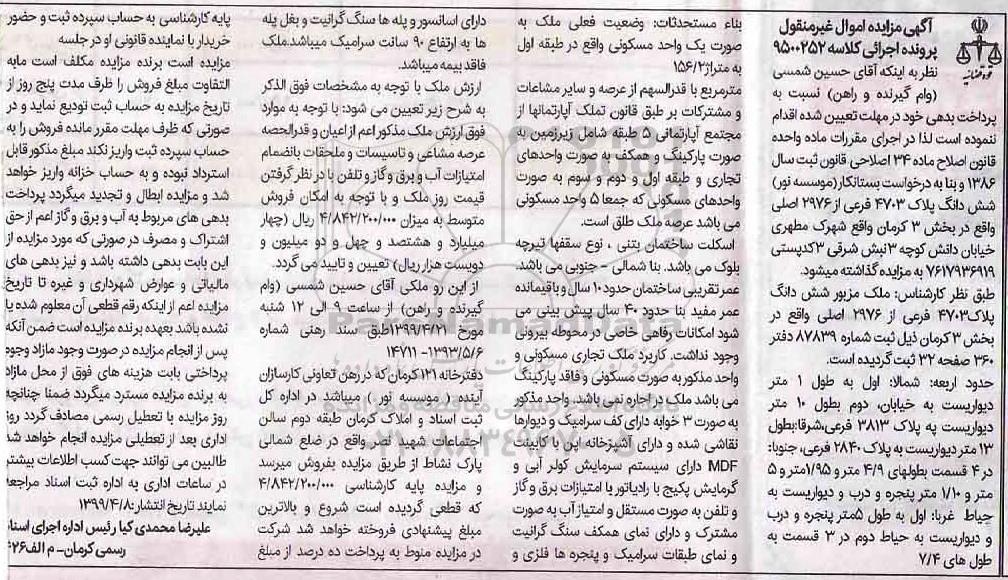 آگهی مزایده اموال غیرمنقول
پرونده اجرائی کلاسه ۹۵۰۰۲۵۲
نظر به اینکه آقای حسین شمسی
(وام گیرنده و راهن) نسبت به
پرداخت بدهی خود در مهلت تعیین شده اقدام
ننموده است لذا در اجرای مقررات ماده واحده
قانون اصلاح ماده ۳۴ اصلاحی قانون ثبت سال
۱۳۸۶ و بنا به درخواست بستانکار (موسسه نور)
شش دانگ پلاک ۴۷۰۳ فرعی از ۲۹۷۶ اصلی
واقع در بخش ۳ کرمان واقع شهرک مطهری
خیابان دانش کوچه ۳ نبش شرقی ۳ کدپستی
۷۶۱۷۹۳۶۹۱۹ به مزایده گذاشته میشود.
طبق نظر کارشناس: ملک مزبور شش دانگ
پلاک ۴۷۰۳ فرعی از ۲۹۷۶ اصلی واقع در
بخش ۳ کرمان ذیل ثبت شماره ۸۷۸۳۹ دفتر
۳۶۰ صفحه ۳۲ ثبت گردیده است.
حدود اربعه: شمالا: اول به طول ۱ متر
دیواریست به خیابان، دوم بطول ۱۰ متر
دیواریست به پلاک ۳۸۱۳ فرعی، شرقا: بطول
۱۳ متر دیواریست به پلاک ۲۸۴۰ فرعی، جنوبا:
در ۴ قسمت بطولهای ۴/۹ متر و ۱/۹۵ متر و ۵
متر و ۱/۱۰ متر پنجره و درب و دیواریست به
حیاط غربا: اول به طول ۵ متر پنجره و درب
و دیواریست به حیاط دوم در ۳ قسمت به
طول های ۷/۴
بناء مستحدثات: وضعیت فعلی ملک به
صورت یک واحد مسکونی واقع در طبقه اول
به متراژ ۱۵۶/۲
مترمربع با قدرالسهم از عرصه و سایر مشاعات
و مشترکات بر طبق قانون تملک آپارتمانها از
مجتمع آپارتمانی ۵ طبقه شامل زیرزمین به
صورت پارکینگ و همکف به صورت واحدهای
تجاری و طبقه اول و دوم و سوم به صورت
واحدهای مسکونی که جمعا ۵ واحد مسکونی
می باشد عرصه ملک طلق است.
اسکلت ساختمان بتنی ، نوع سقفها تیرچه
بلوک می باشد. بنا شمالی - جنوبی می باشد.
عمر تقریبی ساختمان حدود ۱۰ سال و باقیمانده
عمر مفید بنا حدود ۴۰ سال پیش بینی می
شود امکانات رفاهی خاصی در محوطه بیرونی
وجود نداشت. کاربرد ملک تجاری مسکونی و
واحد مذکور به صورت مسکونی و فاقد پارکینگ
می باشد ملک در اجاره نمی باشد. واحد مذکور
به صورت ۳ خوابه دارای کف سرامیک و دیوارها
نقاشی شده و دارای آشپزخانه اپن با کابینت
MDF دارای سیستم سرمایش کولر آبی و
گرمایش پکیج با رادیاتور با امتیازات برق و گاز
و تلفن به صورت مستقل و امتیاز آب به صورت
مشترک و دارای نمای همکف سنگ گرانیت
و نمای طبقات سرامیک و پنجره ها فلزی و
دارای اسانسور و پله ها سنگ گرانیت و بغل پله
ها به ارتفاع ۹۰ سانت سرامیک میباشد. ملک
فاقد بیمه میباشد.
ارزش ملک با توجه به مشخصات فوق الذکر
به شرح زیر تعیین می شود: با توجه به موارد
فوق ارزش ملک مذکور اعم از اعیان و قدرالحصه
عرصه مشاعی و تاسیسات و ملحقات بانضمام
امتیازات آب و برق و گاز و تلفن با در نظر گرفتن
قیمت روز ملک و با توجه به امکان فروش
متوسط به میزان ۴/۸۴۲/۲۰۰/۰۰۰ ریال (چهار
میلیارد و هشتصد و چهل و دو میلیون و
دویست هزار ریال) تعیین و تایید می گردد.
از این رو ملکی آقای حسین شمسی (وام
گیرنده و راهن) از ساعت ۹ الی ۱۲ شنبه
مورخ ۱۳۹۹/۴/۲۱ طبق سند رهنی شماره
۱۳۹۳/۵/۶- ۱۴۷۱۱
دفترخانه ۱۲۱ کرمان که در رهن تعاونی کارسازان
آینده ( موسسه نور ) میباشد در اداره کل
ثبت اسناد و املاک کرمان طبقه دوم سالن
اجتماعات شهید نصر واقع در ضلع شمالی
پارک نشاط از طریق مزایده بفروش میرسد
و مزایده پایه کارشناسی ۴/۸۴۲/۲۰۰/۰۰۰
که قطعی گردیده است شروع و بالاترین
مبلغ پیشنهادی فروخته خواهد شد شرکت
در مزایده منوط به پرداخت ده درصد از مبلغ
پایه کارشناسی به حساب سپرده ثبت و حضور
خریدار با نماینده قانونی او در جلسه
مزایده است برنده مزایده مکلف است مابه
التفاوت مبلغ فروش را ظرف مدت پنج روز از
تاریخ مزایده به حساب ثبت تودیع نماید و در
صورتی که ظرف مهلت مقرر مانده فروش را به
حساب سپرده ثبت واریز نکند مبلغ مذکور قابل
استرداد نبوده و به حساب خزانه واریز خواهد
شد و مزایده ابطال و تجدید میگردد پرداخت
بدهی های مربوط به آب و برق و گاز اعم از حق
اشتراک و مصرف در صورتی که مورد مزایده از
این بابت بدهی داشته باشد و نیز بدهی های
مالیاتی و عوارض شهرداری و غیره تا تاریخ
مزایده اعم از اینکه رقم قطعی آن معلوم شده یا
نشده باشد بعهده برنده مزایده است ضمن آنکه
پس از انجام مزایده در صورت وجود مازاد وجوه
پرداختی بابت هزینه های فوق از محل مازاد
به برنده مزایده مسترد میگردد ضمنا چنانچه
روز مزایده با تعطیل رسمی مصادف گردد روز
اداری بعد از تعطیلی مزایده انجام خواهد شد
طالبین می توانند جهت کسب اطلاعات بیشتر
در ساعات اداری به اداره ثبت اسناد مراجعه
نمایند تاریخ انتشار: ۱۳۹۹/۴/۸
علیرضا محمدی کیا رئیس اداره اجرای اسناد
رسمی کرمان- م الف ۴۲۶